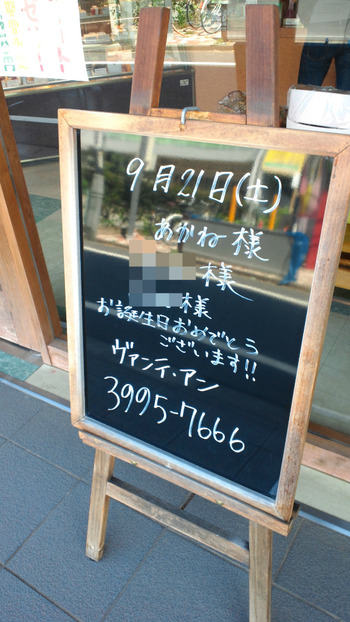 9月21日(土)
あかね様
様
様
お誕生日おめでとう
ございます!!
ヴァンティ・アン
3995-7666